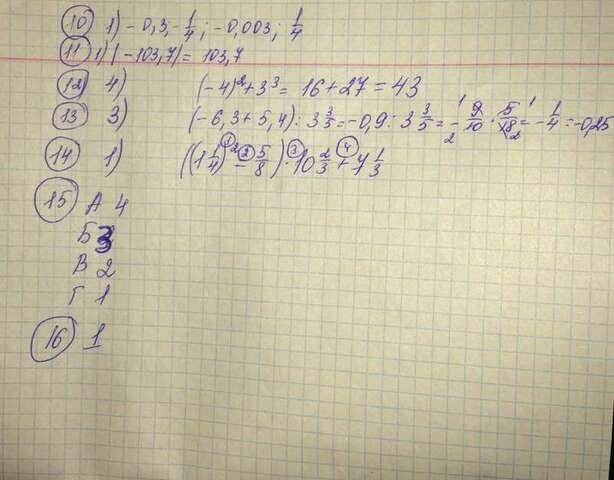 10 1) -0,3; -1/4; -0,003; 1/4
11 1) |-103,7| = 103,7
12 4) (-4)² + 3³ = 16 + 27 = 43
13 3) (-6,3 + 5,4) : 3 3/5 = -0,9 : 3 3/5 = - 9/10 · 5/18 = - 1/4 = -0,25
14 1) ((1 1/4)² - 5/8) · 10 2/3 + 4 1/3
15 А 4
Б 3
В 2
Г 1
16 1